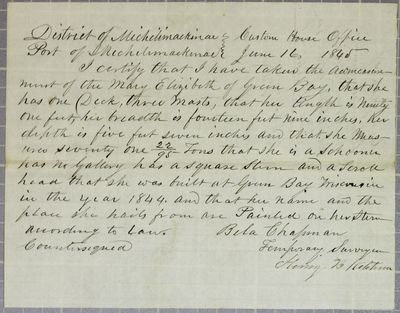 District of Michilimackinac } Custom House Office
Port of Michilimackinac } June 16, 1845
I certify that I have taken the admeasure-
ment of the Mary Elizibeth of Green Bay, that she
has one Deck, three masts, that her length is Ninety
one feet, her breadth is fourteen feet nine inches, her
depth is five feet seven inches and that she Meas-
ures seventy one 22/95 Tons that she is a Schooner
has no Gallery has a square Stern and a Scroll
head that she was built at Green Bay Wisconsin
in the year 1844. and that her name and the
place she hails from are Painted on her Stern
according to Law. Bela Chapman
Countersigned Temporary Surveyor
Henry